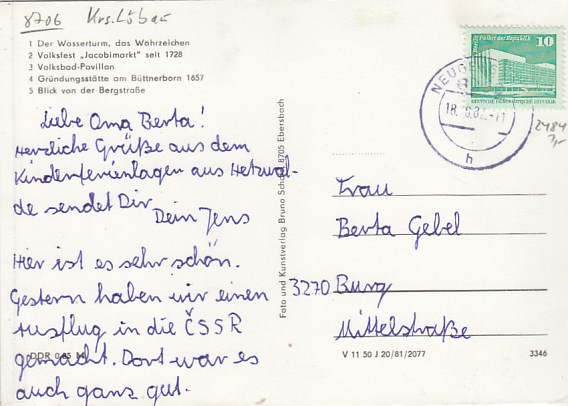 8706 Krs. Löbau
1 Der Wasserturm, das Wahrzeichen
2 Volksfest „Jacobimarkt" seit 1728
3 Volksbad-Pavillon
4 Gründungsstätte am Büttnerborn 1657
5 Blick von der Bergstraße
Liebe Oma Berta!
Herzliche Grüße aus dem
Kinderferienlagen aus Hetzwal-
de sendet Dir
Dein Jens
Hier ist es sehr schön.
Gestern haben wir einen
Ausflug in die ČSSR
gemacht. Dort war es
auch ganz gut.
DDR M
Foto und Kunstverlag Bruno Scholz 8705 Ebersbach
Palast der Republik
10
DEUTSCHE DEMOKRATISCHE REPUBLIK
NEUGE
h
2484
Frau
Berta Gebel
3270 Burg
Mittelstraße
V 11 50 J 20/81/2077
3346